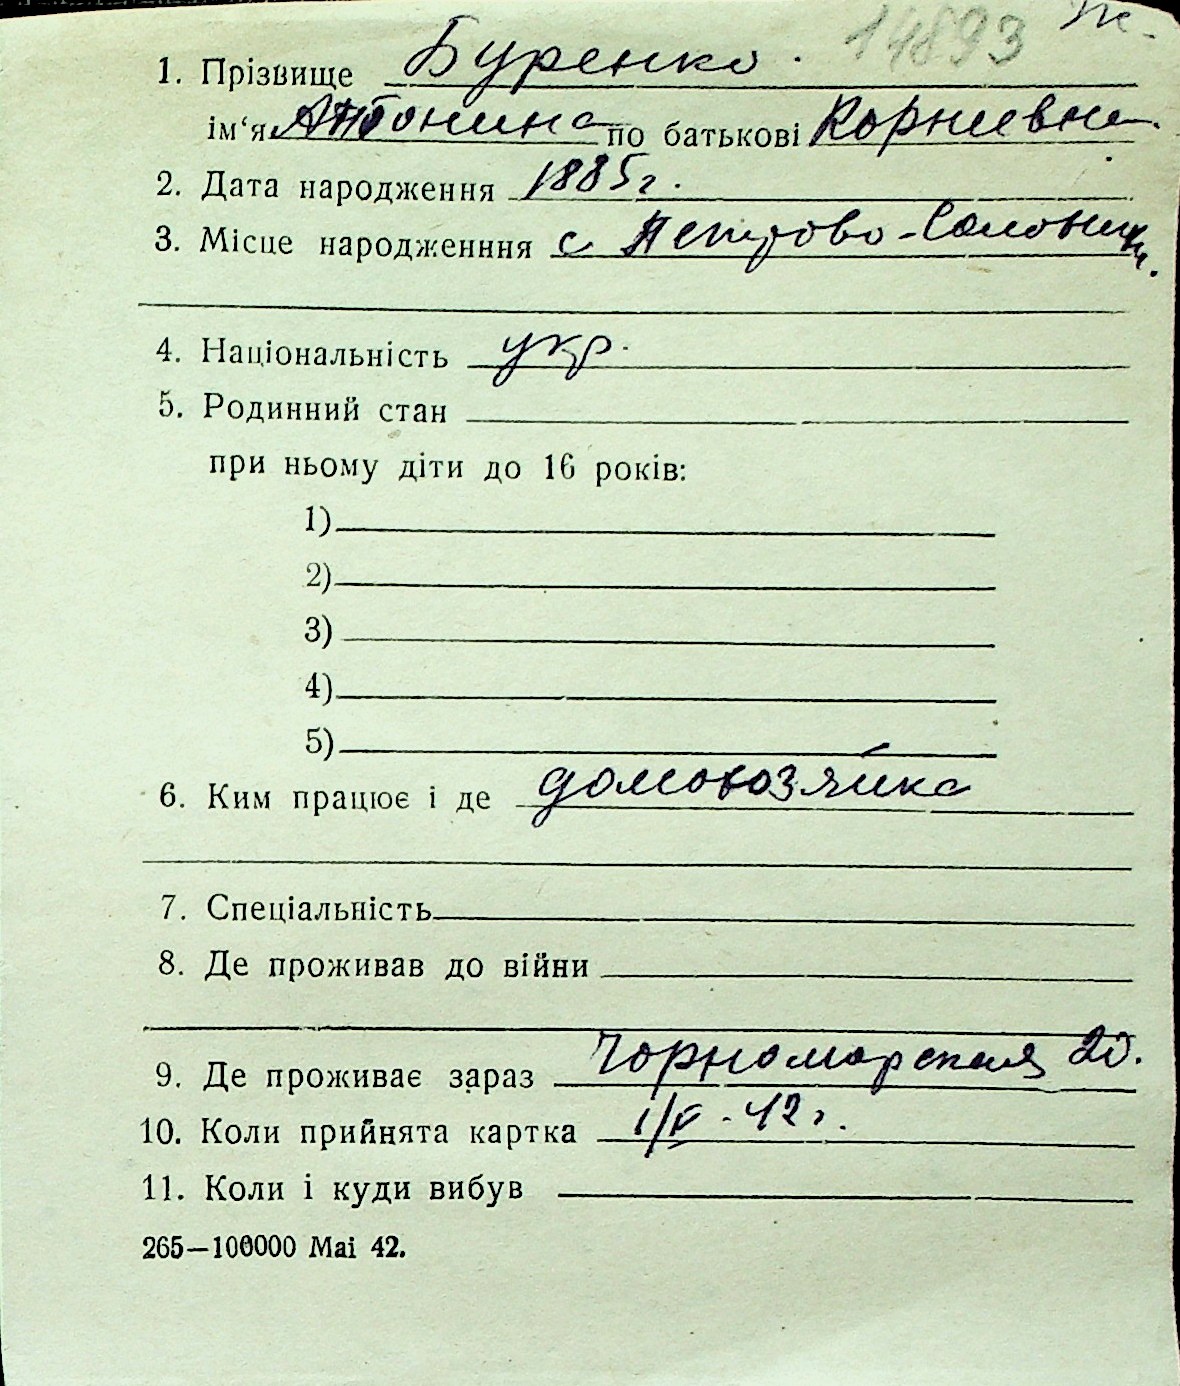 14893 Ж.
1. Прізвище Буренко.
ім‘я Антонина по батькові Корниевна.
2. Дата народження 1885 г.
3. Місце народженння с Петрово-Солониха.
4. Національність укр.
5. Родинний стан
при ньому діти до 16 років:
1)
2)
3)
4)
5)
6. Ким працює і де домохозяйка
7. Спеціальність
8. Де проживав до війни
9. Де проживає зараз Чорноморская 20.
10. Коли прийнята картка 1/V - 42 г.
11. Коли і куди вибув
265—100000 Mai 42.